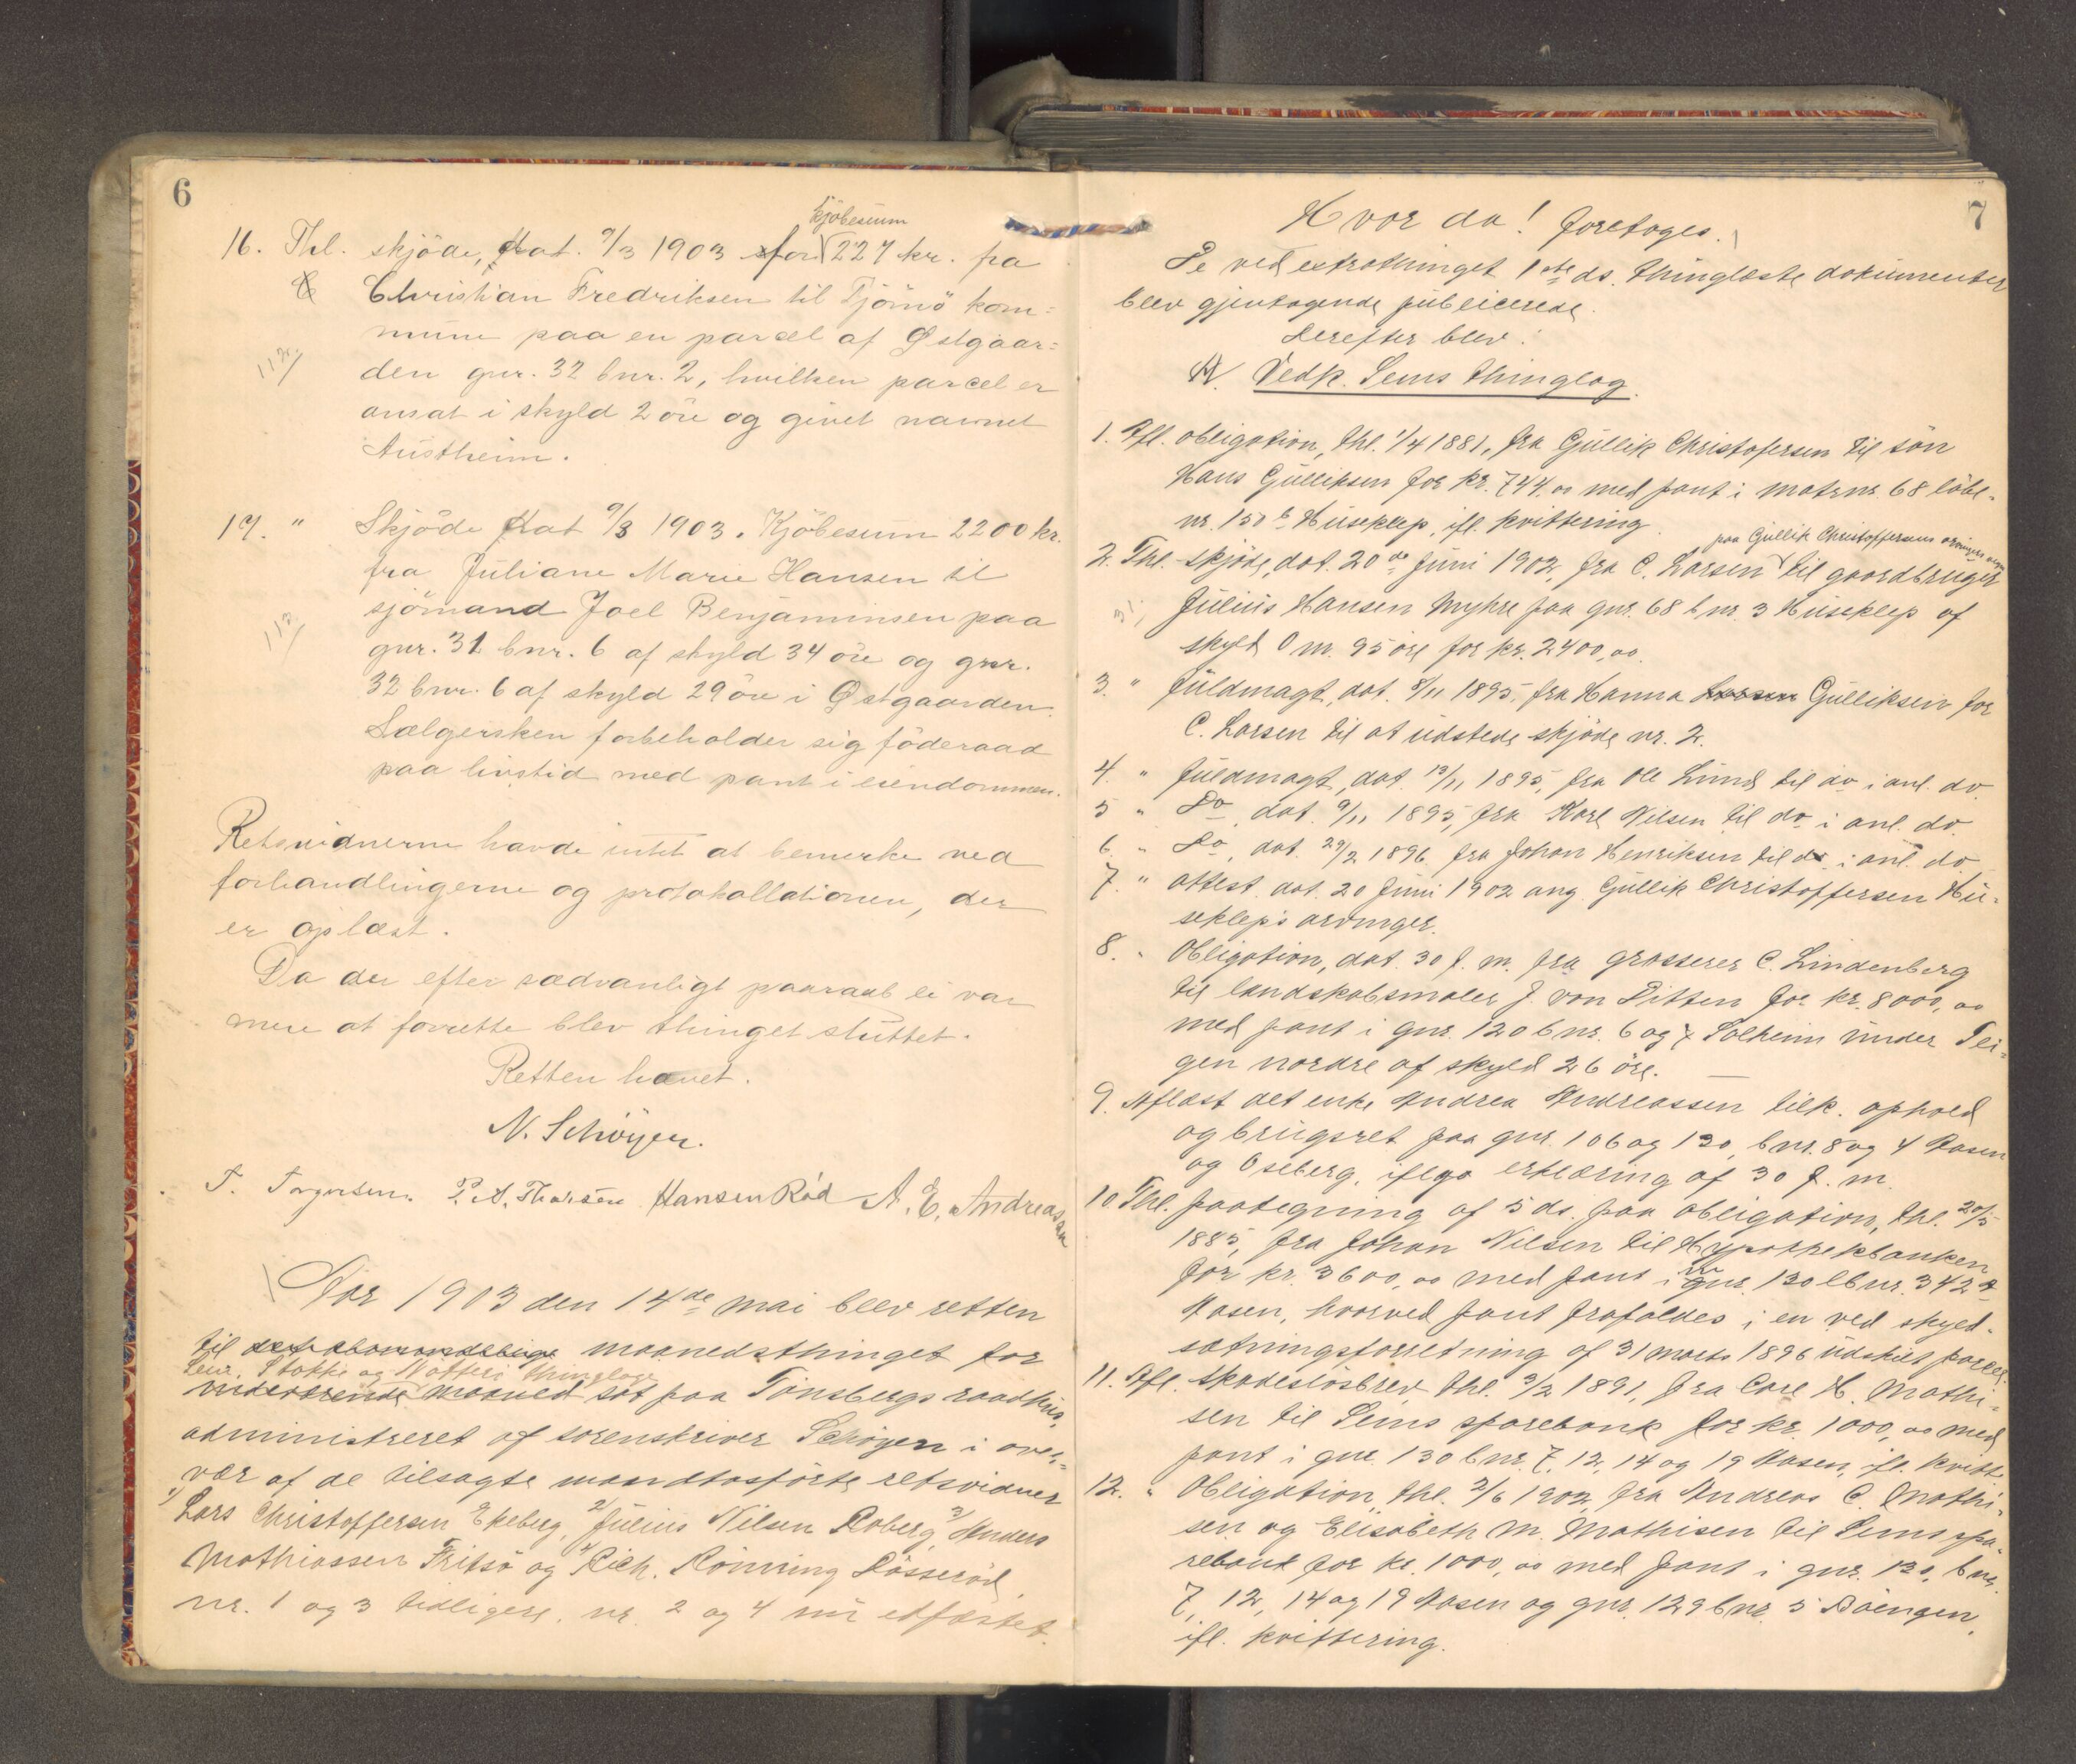 6
16. Thl. skjöde, dat. 9/3 1903 for kjöbesum 227 kr. fra
Christian Fredriksen til Tjömö kom=
mune paa en parcel af Østgaar=
den gnr. 32 bnr. 2, hvilken parcel er
ansat i skyld 2 öre og givet navnet
Austheim.
17. " Skjöde dat 9/3 1903. Kjöbesum 2200 kr.
fra Juliane Marie Hansen til
sjömand Joel Benjaminsen paa
gnr. 31 bnr. 6 af skyld 34 öre og gnr.
32 bnr. 6 af skyld 29 öre i Østgaarden.
Sælgersken forbeholder sig föderaad
paa livstid med pant i eiendommen.
Retsvidnerne havde intet at bemerke ved
forhandlingerne og protokollationen, der
er oplæst.
Da der efter sædvanligt paaraab ei var
mere at forrette blev thinget sluttet.
Retten hævet.
N. Schöyen.
T. Torgersen. P. A. Thorsen Hansen Röd A. E. Andreassen
Aar 1903 den 14de mai blev retten
til maanedsthinget for
Sem, Stokke og Nötterö thinglage
sat paa Tönsbergs raadhus,
administreret af sorenskriver Schöyen i over=
vær af de tilsagte mandtasförte retsvidner
1) Lars Christoffersen Ekeberg, 2) Julius Nilsen Roberg, 3) Anders
Mathiassen Fritsö og 4) Rich. Rönning Rösseröd,
nr. 1 og 3 tidligere, nr. 2 og 4 nu edfæstet.
7
Hvor da! foretoges.
De ved extrathinget 1ste ds. thinglæste dokumenter
blev gjentagende publicerede.
Derefter blev:
A. Vedk. Sems thinglag.
1. Afl. obligation, thl. 1/4 1881, fra Gullik Christofersen til sön
Hans Gulliksen for kr. 744,00 med pant i matrnr. 68 löbe-
nr. 150 b Huseklep, ifl. kvittering.
paa Gullik Christoffersens arvingers vegne
2. Thl. skjöde, dat. 20de juni 1902, fra C. Larsen til gaardbruger
Julius Hansen Myhre paa gnr. 68 bnr. 3 Huseklep af
skyld 0 m. 95 öre for kr. 2400,00.
3. " fuldmagt, dat. 8/11 1895, fra Hanna Larsen Gulliksen for
C. Larsen til at udstede skjöde nr. 2.
4. " fuldmagt, dat. 13/11 1895, fra Ole Lund til do i anl. do.
5 " Do, dat. 9/11 1895, fra Karl Nilsen til do. i anl. do.
6. " Do, dat. 29/2 1896 fra Johan Henriksen til do i anl. do
7. " attest. dat. 20 juni 1902 ang. Gullik Christoffersen Hu-
seklep's arvinger.
8. " Obligation, dat. 30 f. m. fra grosserer C. Lindenberg
til landskabsmaler J. von Ditten for kr. 8000,00
med pant i gnr. 120 bnr. 6 og 7 Solheim under Tei=
gen nordre af skyld 26 öre.
9. Aflæst det enke Andrea Andreassen tilk. ophold
og brugsret paa gnr. 106 og 130, bnr. 8 og 4 Basen
og Oseberg, iflge erklæring af 30 f. m.
10. Thl. paategning af 5 ds. paa obligation, thl. 20/5
1885, fra Johan Nilsen til Hypothekbanken
for kr. 3600,00 med pant i gnr. 130 lbnr. 342 a
Aasen, hvorved pant frafaldes i en ved skyld-
sætningsforretning af 31 marts 1896 udskilt parcel.
11. Afl. skadeslösbrev, thl. 3/2 1891, fra Carl H. Mathi-
sen til Sems sparebank for kr. 1000,00 med
pant i gnr. 130 bnr. 7, 12, 14 og 19 Aasen, ifl. kvitt.
12. " Obligation, thl. 2/6 1902, fra Andreas C. Mathi-
sen og Elisabeth M. Mathisen til Sems spa-
rebank for kr. 1000,00 med pant i gnr. 130, bnr.
7, 12, 14 og 19 Aasen og gnr. 129 bnr. 5 Böengen,
ifl. kvittering.